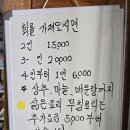 회를 가져오시면
2인 15,000
3-인 20000
4인부터 1인 6,000
* 상추, 마늘, 매운탕까지
* 삶은요리 무침요리는
추가요금 5,000부터